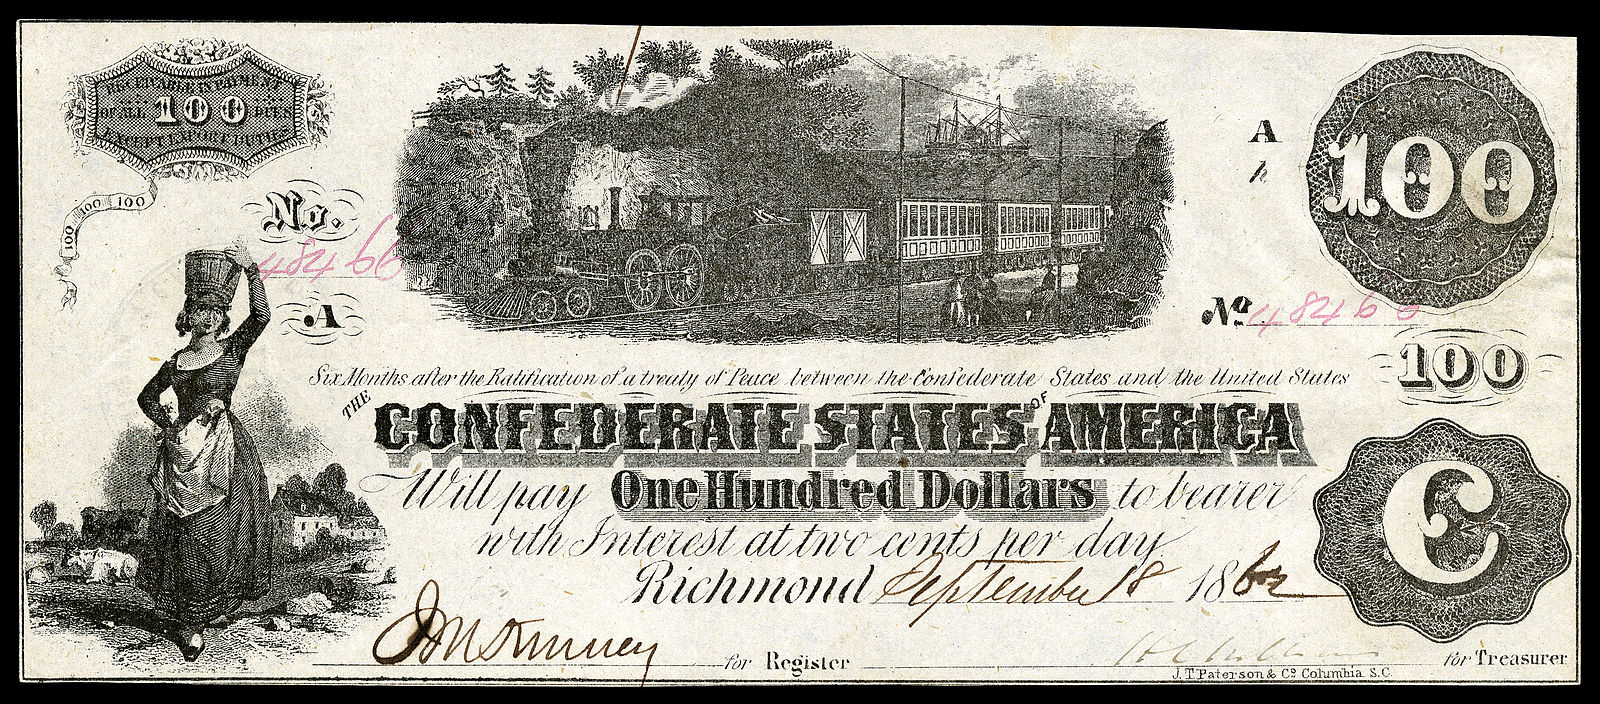 RECEIVABLE IN PAYMENT
OF ALL 100 DUES
EXCEPT EXPORT DUTIES
100 100 100
No.
48466
.A
A
h
100
No. 48466
100
Six Months after the Ratification of a treaty of Peace between the Confederate States and the United States
THE CONFEDERATE STATES OF AMERICA
Will pay One Hundred Dollars to bearer
with Interest at two cents per day.
Richmond September 18 1862
C
for Register
for Treasurer
J. T. Paterson & Co. Columbia. S.C.